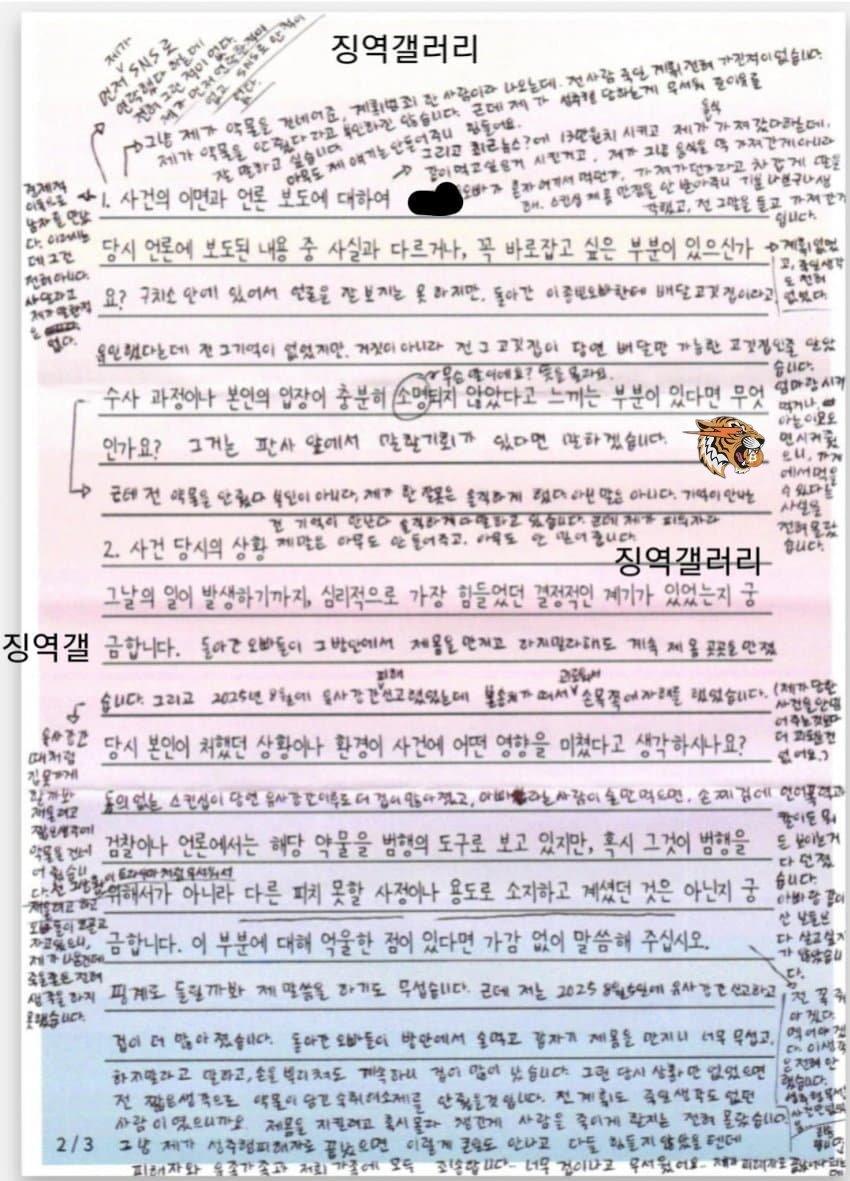 징역갤러리
제가
먼저 SNS로
연락했다 하는데
전혀 그런 적이 없다.
그냥 제가 약물을 건네어준, 계획범죄 한 사람이라 나오는데. 전 사람 죽일 계획 전혀 가진적이 없습니다.
제가 약물을 안 줬다 라고 부인하진 않습니다. 근데 제가 성추행 당하는게 무서워 준이유를
잘 말하고 싶습니다
아무도 제 얘기는 안들어주니 힘들어요.
음식
그리고 13만원치 시키고 제가 가져갔다하는데,
같이먹고싶은거 시킨거고, 제가 그냥 음식을 막 가져간게 아니라
경제적
이득으로
남자를 만났
다. 이러시는
데 그건
전혀 아니다.
없다.
1. 사건의 이면과 언론 보도에 대하여
당시 언론에 보도된 내용 중 사실과 다르거나, 꼭 바로잡고 싶은 부분이 있으신가
계획 없었
고, 죽일생각
도 전혀
없었다.
요? 구치소 안에 있어서 언론을 잘 보지는 못 하지만, 돌아간 오빠한테 배달 고깃집이라고
속인했다는데 전 그기억이 없었지만, 거짓이 아니라 전 그 고깃집이 당연 배달만 가능한 고깃집인줄 알았
습니다.
무슨 말이에요? 뜻을 몰라요.
수사 과정이나 본인의 입장이 충분히 소명되지 않았다고 느끼는 부분이 있다면 무엇
인가요? 그거는 판사 앞에서 말할기회가 있다면 말하겠습니다.
엄마랑 시켜
먹거나,
가게
에서 먹을
수 있다는
사실을
전혀 몰랐
습니다.
근데 전 약물을 안 줬다 부인이 아니다, 제가 한 잘못은 솔직하게 했다. 아닌 말은 아니다. 기억이 안나는
건 기억이 안난다 솔직하게 다 말하고 있습니다. 근데 제가 피의자라
2. 사건 당시의 상황 제말은 아무도 안 들어주고, 아무도 안 믿어 줍니다.
징역갤러리
그날의 일이 발생하기까지, 심리적으로 가장 힘들었던 결정적인 계기가 있었는지 궁
징역갤
금합니다. 돌아간 오빠들이 그 방안에서 제몸을 만지고 하지말라해도 계속 제 몸 곳곳을 만졌
피해
습니다. 그리고 2025년 8월에 유사강간신고했었는데 불송치가 떠서 손목쪽에 자해를 했었습니다.
(제가 당한
사건을 안믿
어주는것보다
더 괴로운건
없어요.)
당시 본인이 처했던 상황이나 환경이 사건에 어떤 영향을 미쳤다고 생각하시나요?
유사강간
때처럼
깊못가게
할까봐
재우려고
짧은생각에
약물을 건네
어 줬습니
다.
동의 없는 스킨십이 당연 유사강간이후로 더 겁이 많아졌고, 아빠라는사람이 술만 먹으면, 손찌검에
언어폭력과
칼이든 뭐
든 보이는게
다 던졌
습니다.
아빠랑 같이
산 날들은
다 살고싶지
가 않았습니
다.
검찰이나 언론에서는 해당 약물을 범행의 도구로 보고 있지만, 혹시 그것이 범행을
위해서가 아니라 다른 피치 못할 사정이나 용도로 소지하고 계셨던 것은 아닌지 궁
금합니다. 이 부분에 대해 억울한 점이 있다면 가감 없이 말씀해 주십시오.
재우려고 하고
오빠들이 코골고
자고있으니,
제가 나온건데
죽을줄은 전혀
생각을 하지
못했습니다.
핑계로 들릴까봐 제 말씀을 하기도 무섭습니다. 근데 저는 2025 8월5일에 유사강간 신고하고
겁이 더 많아 졌습니다. 돌아간 오빠들이 방안에서 술먹고 갑자기 제몸을 만지니 너무 무섭고,
하지말라고 말하고, 손을 뿌리쳐도 계속하니 겁이 많이 났습니다. 그런 당시 상황만 없었으면
전 짧은생각으로 약물이 담긴 숙취해소제를 안줬을것 입니다. 전 계획도 죽일생각도 없던
사람이었으니까요. 제몸을 지키려고 혹시몰라 챙긴게 사람을 죽이게 할지는 전혀 몰랐습니다
2/3
그냥 제가 성추행피해자로 끝났으면 이렇게 큰일도 안나고 다들 힘들지 않았을텐데
피해자와 유족가족과 저희 가족에 모두 죄송합니다- 너무 겁이나고 무서웠어요-